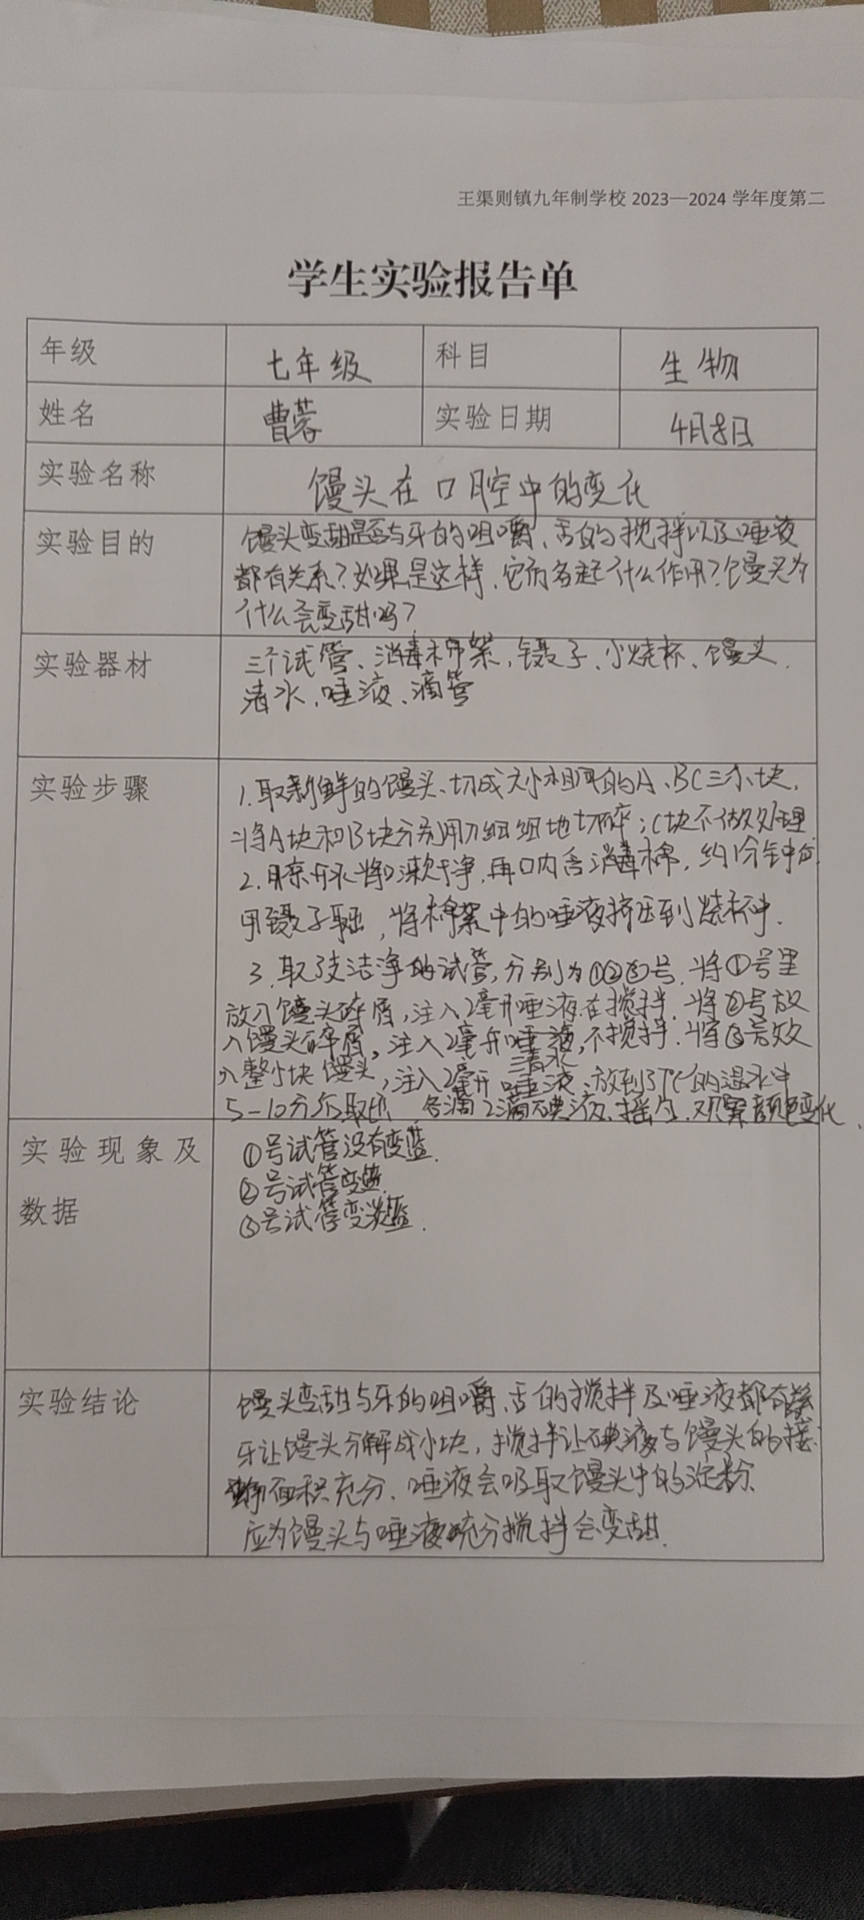 王渠则镇九年制学校 2023—2024 学年度第二
学生实验报告单
年级 七年级 科目 生物
姓名 曹蓉 实验日期 4月8日
实验名称 馒头在口腔中的变化
实验目的 馒头变甜是否与牙的咀嚼、舌的搅拌以及唾液
都有关系?如果是这样,它们各起什么作用?馒头为
什么会变甜吗?
实验器材 三个试管、消毒棉絮,镊子、小烧杯、馒头、
清水、唾液、滴管
实验步骤 1.取新鲜的馒头、切成大小相同的A、BC三小块,
将A块和B块分别用刀细细地切碎;C块不做处理
2.用凉开水将口漱干净,再口内含消毒棉,约1分钟后
用镊子取出,将棉絮中的唾液挤压到烧杯中.
3.取3支洁净的试管,分别为①②③号.将①号里
放入馒头碎屑,注入2毫升唾液在搅拌.将②号放
入馒头碎屑,注入2毫升唾液,不搅拌.将③号放
清水
入整小块馒头,注入2毫升唾液,放到37℃的温水中
5-10分后取出 各滴2滴碘液、摇匀.观察颜色变化.
实验现象及
数据
①号试管没有变蓝.
②号试管变蓝.
③号试管变淡蓝.
实验结论 馒头变甜与牙的咀嚼,舌的搅拌及唾液都有关
牙让馒头分解成小块,搅拌让碘液与馒头的接
面积充分、唾液会吸取馒头中的淀粉.
应为馒头与唾液充分搅拌会变甜.